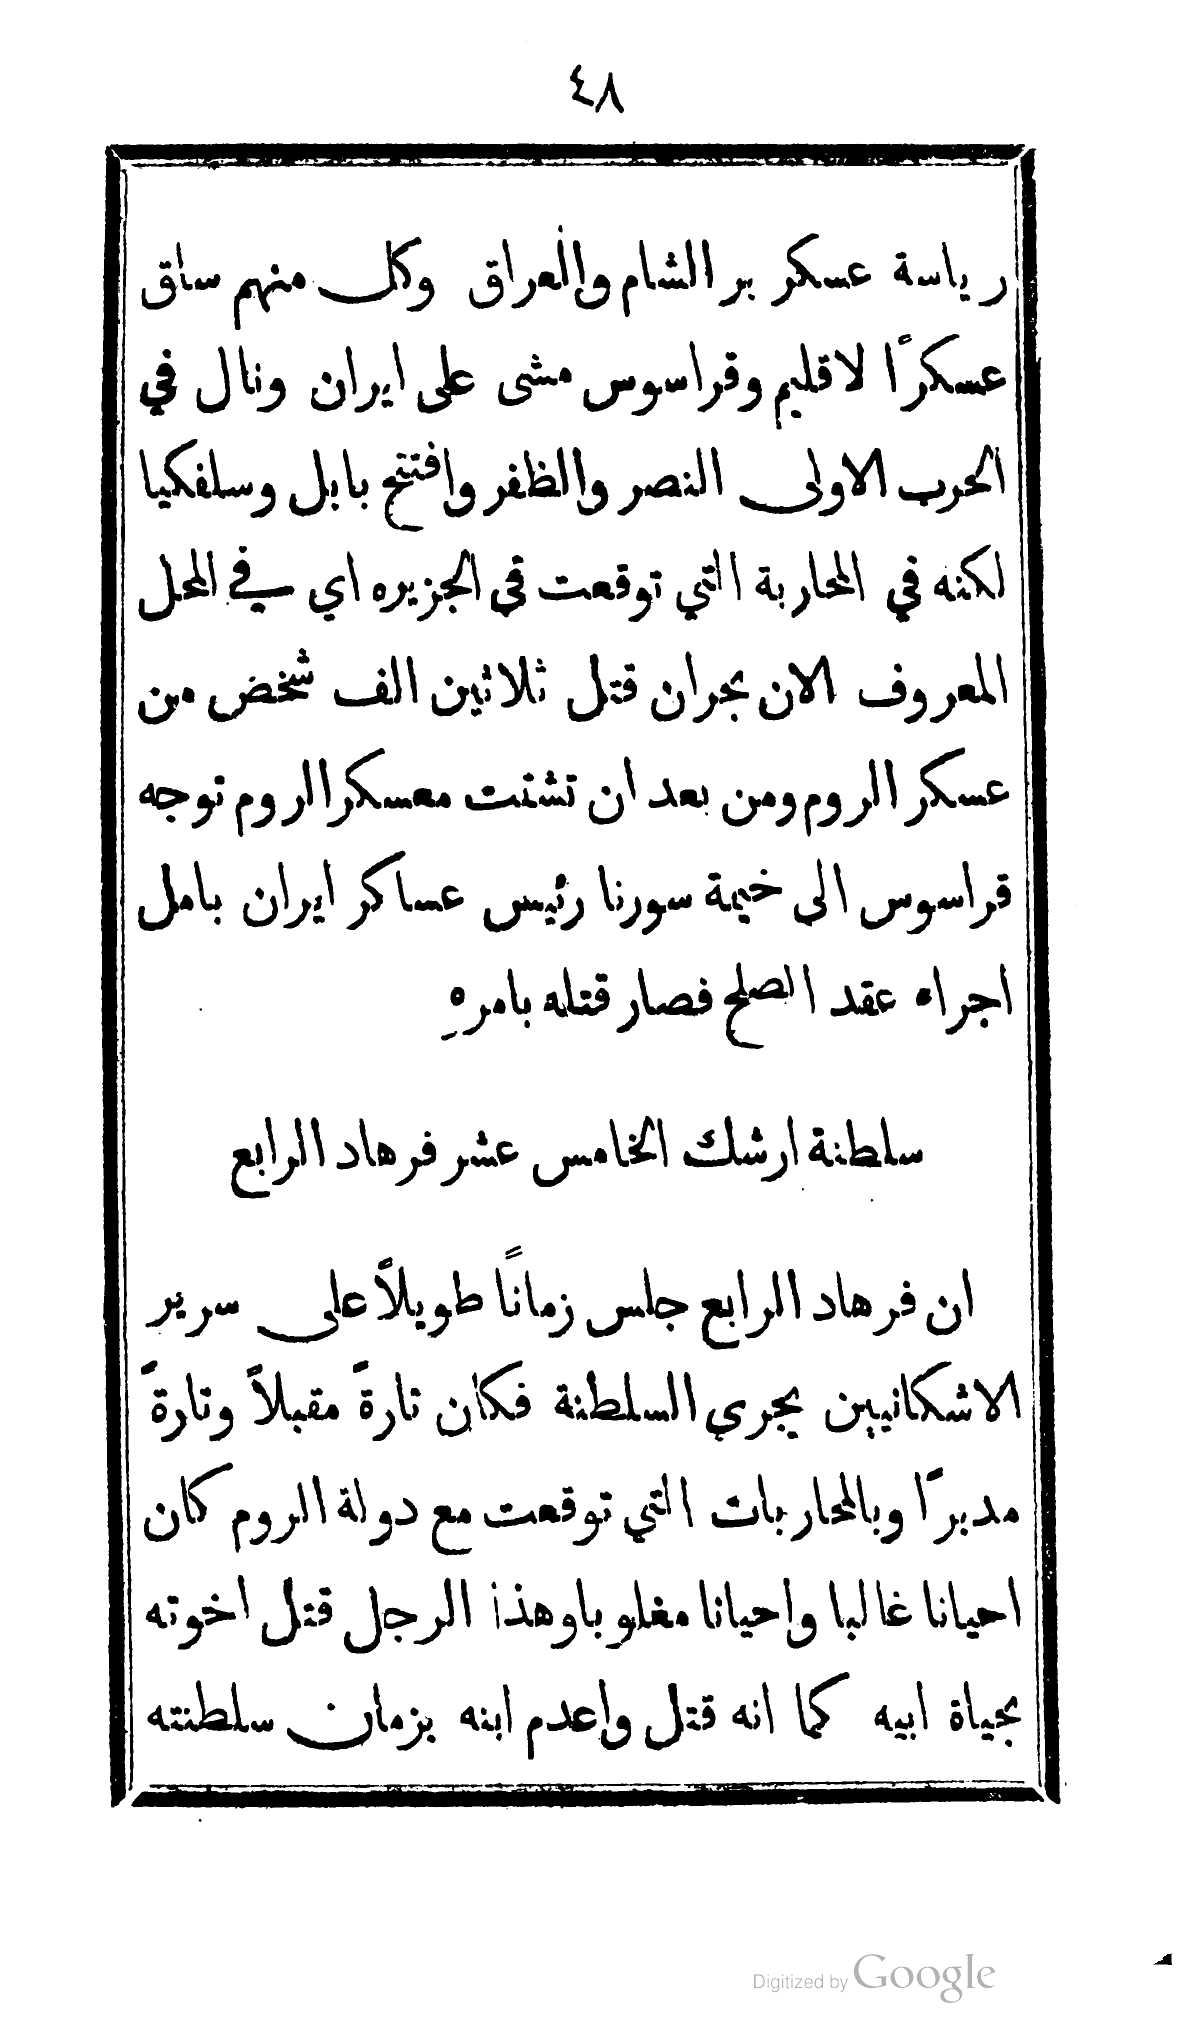 ٤٨
رياسة عسكر بر الشام والعراق وكل منهم ساق
عسكرًا لاقليم وقراسوس مشى على ايران ونال في
الحرب الاولى النصر والظفر وافتتح بابل وسلفكيا
لكنه في المحاربة التي توقعت في الجزيره اي في المحل
المعروف الان بحران قتل ثلاثين الف شخض من
عسكر الروم ومن بعد ان تشتت معسكر الروم توجه
قراسوس الى خيمة سورنا رئيس عساكر ايران بامل
اجراء عقد الصلح فصار قتله بامرهِ
سلطنة ارشك الخامس عشر فرهاد الرابع
ان فرهاد الرابع جلس زمانًا طويلاً على سرير
الاشكانيين يجري السلطنة فكان تارةً مقبلاً وتارةً
مدبرًا وبالمحاربات التي توقعت مع دولة الروم كان
احيانا غالبا واحيانا مغلوبا وهذا الرجل قتل اخوته
بحياة ابيه كما انه قتل واعدم ابنه بزمان سلطنته
Digitized by Google